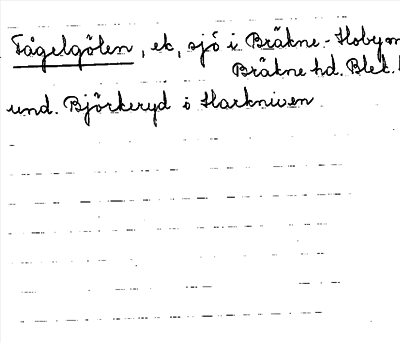 Fågelgölen, ek, sjö i Bräkne-Hoby
Bräkne hd. Blek.
und. Björkeryd o Harkniven